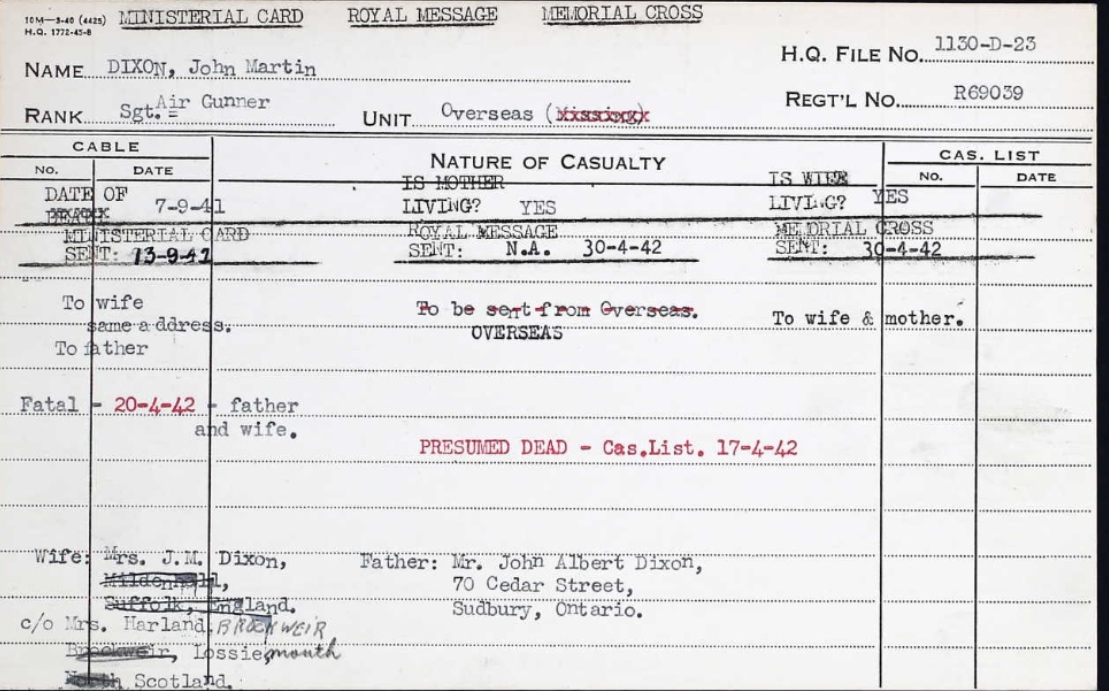 10M—3-40 (4425) MINISTERIAL CARD ROYAL MESSAGE MEMORIAL CROSS
H.Q. 1772-45-8
H.Q. FILE NO. 1130-D-23
NAME DIXON, John Martin
REGT'L NO. R69039
RANK Sgt. Air Gunner UNIT Overseas (Missing)
CABLE NATURE OF CASUALTY CAS. LIST
NO. DATE NO. DATE
IS MOTHER IS WIFE
DATE OF 7-9-41 LIVING? YES LIVING? YES
MINISTERIAL CARD ROYAL MESSAGE MEMORIAL CROSS
SENT: 13-9-41 SENT: N.A. 30-4-42 SENT: 30-4-42
To wife To be sent from Overseas. To wife & mother.
same address. OVERSEAS
To father
Fatal - 20-4-42 - father
and wife.
PRESUMED DEAD - Cas.List. 17-4-42
Wife: Mrs. J.M. Dixon, Father: Mr. John Albert Dixon,
Mildenhall, 70 Cedar Street,
Suffolk, England. Sudbury, Ontario.
c/o Mrs. Harland, BROCKWEIR
Brockweir, Lossiemouth
North Scotland.